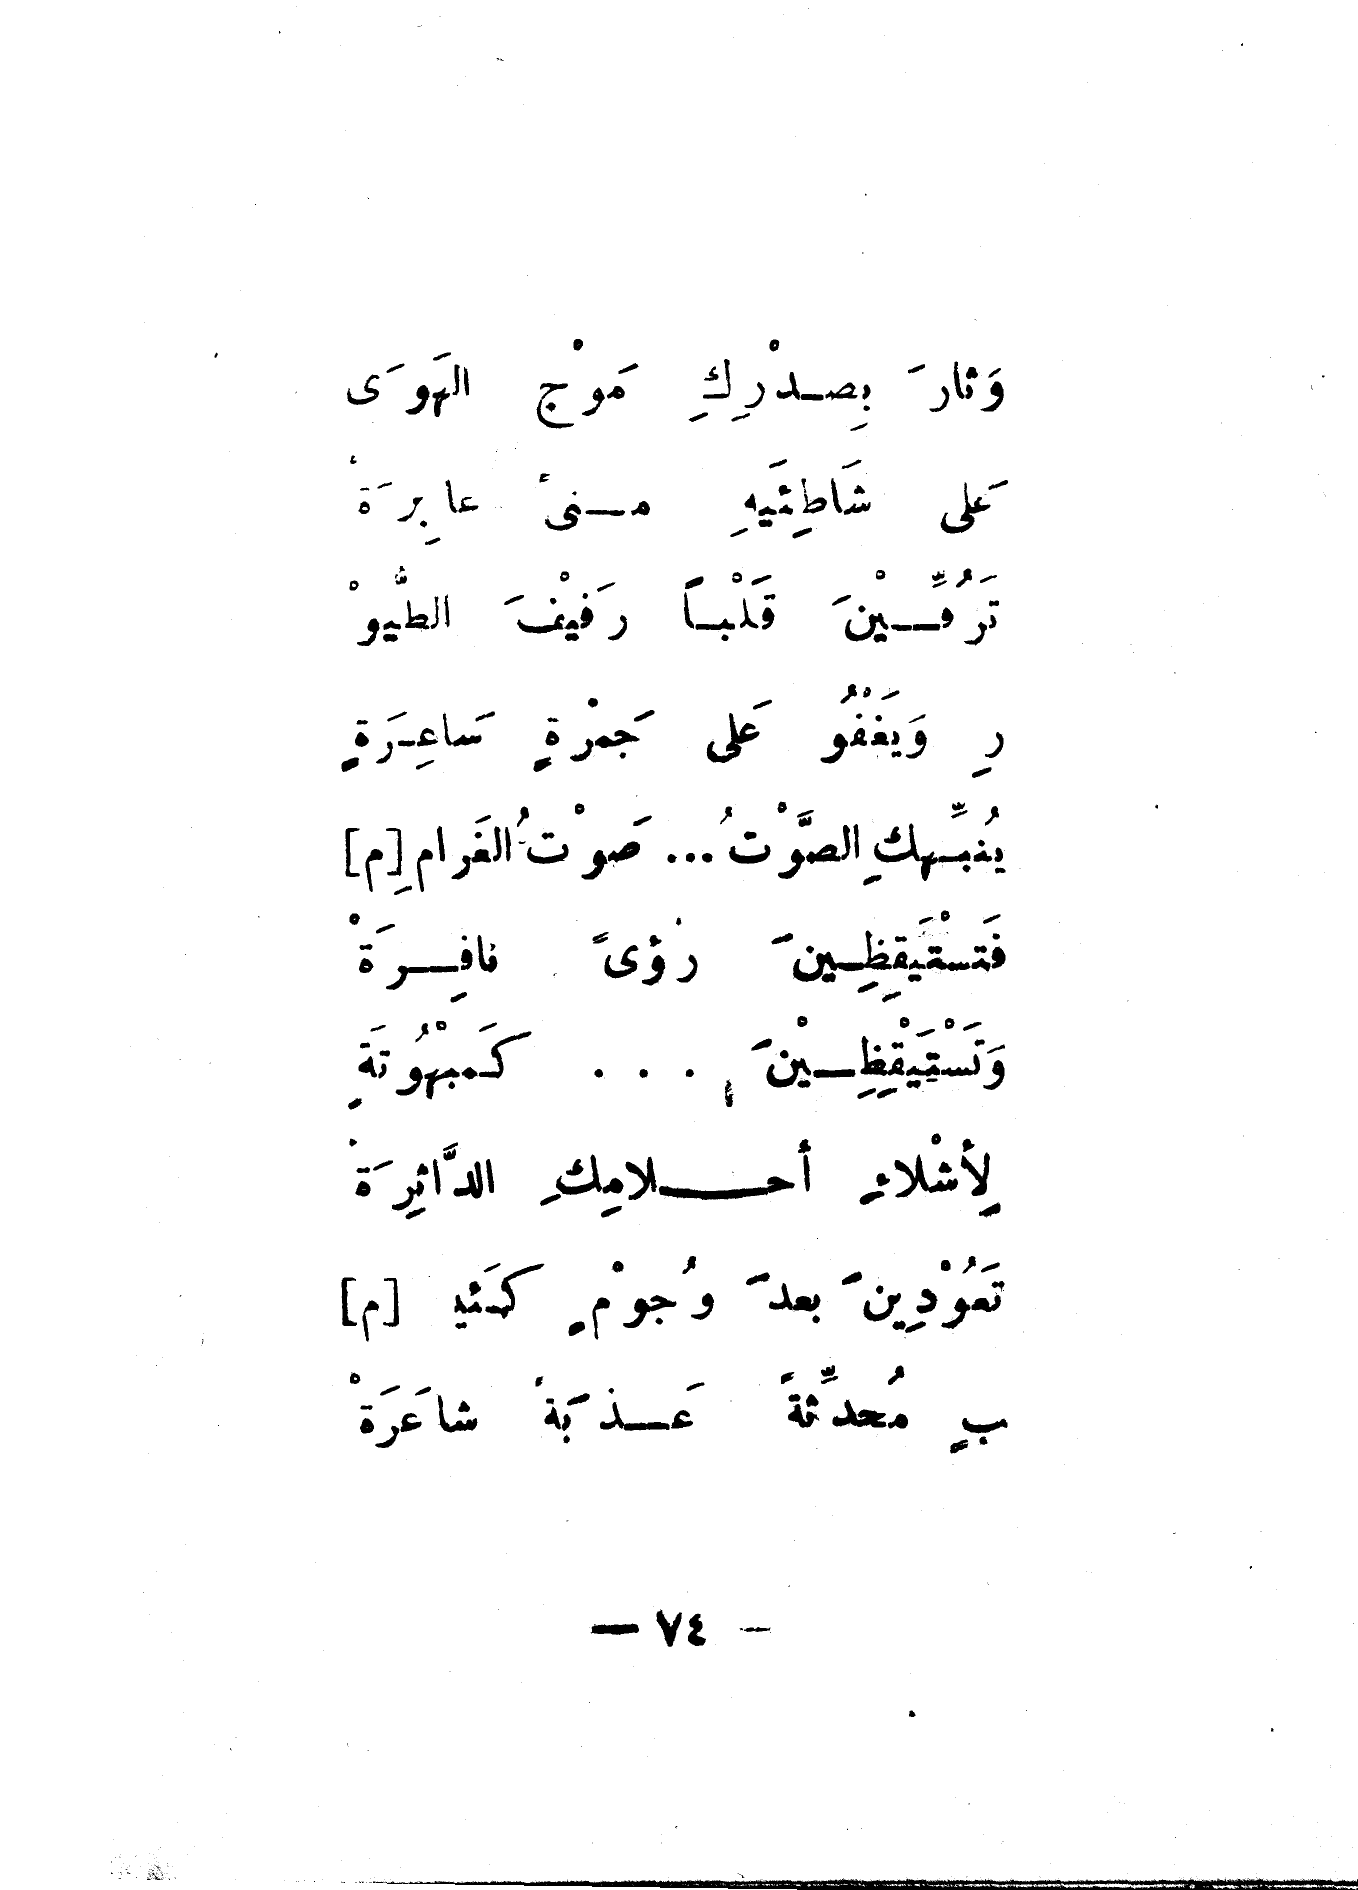 وَثارَ بِصدْرِكِ مَوْج الهَوَى
عَلى شَاطِئَيهِ مـنىً عابِرَةْ
تَرُفِّـيْنَ قَلْبـاً رَفيْفَ الطُّيوْ
رِ وَيَغْفُو عَلى جَمْرةٍ سَاعِرَةٍ
يُنبِّهكِ الصَّوْتُ... صَوْتُ الغَرام [م]
فَتستَيقِظِـينَ رُؤىً نافِـرَةْ
وَتَسْتَيْقِظِـيْنَ . . . كَمبْهُوتَةٍ
لِأشْلاءِ أحـلامِكِ الدَّاثِرَةْ
تَعُوْدِينَ بعدَ وُجوْمٍ كَئيـ [م]
ـبٍ مُحدِّثةً عَـذبَةً شاعَرَةْ
— ٧٤ —